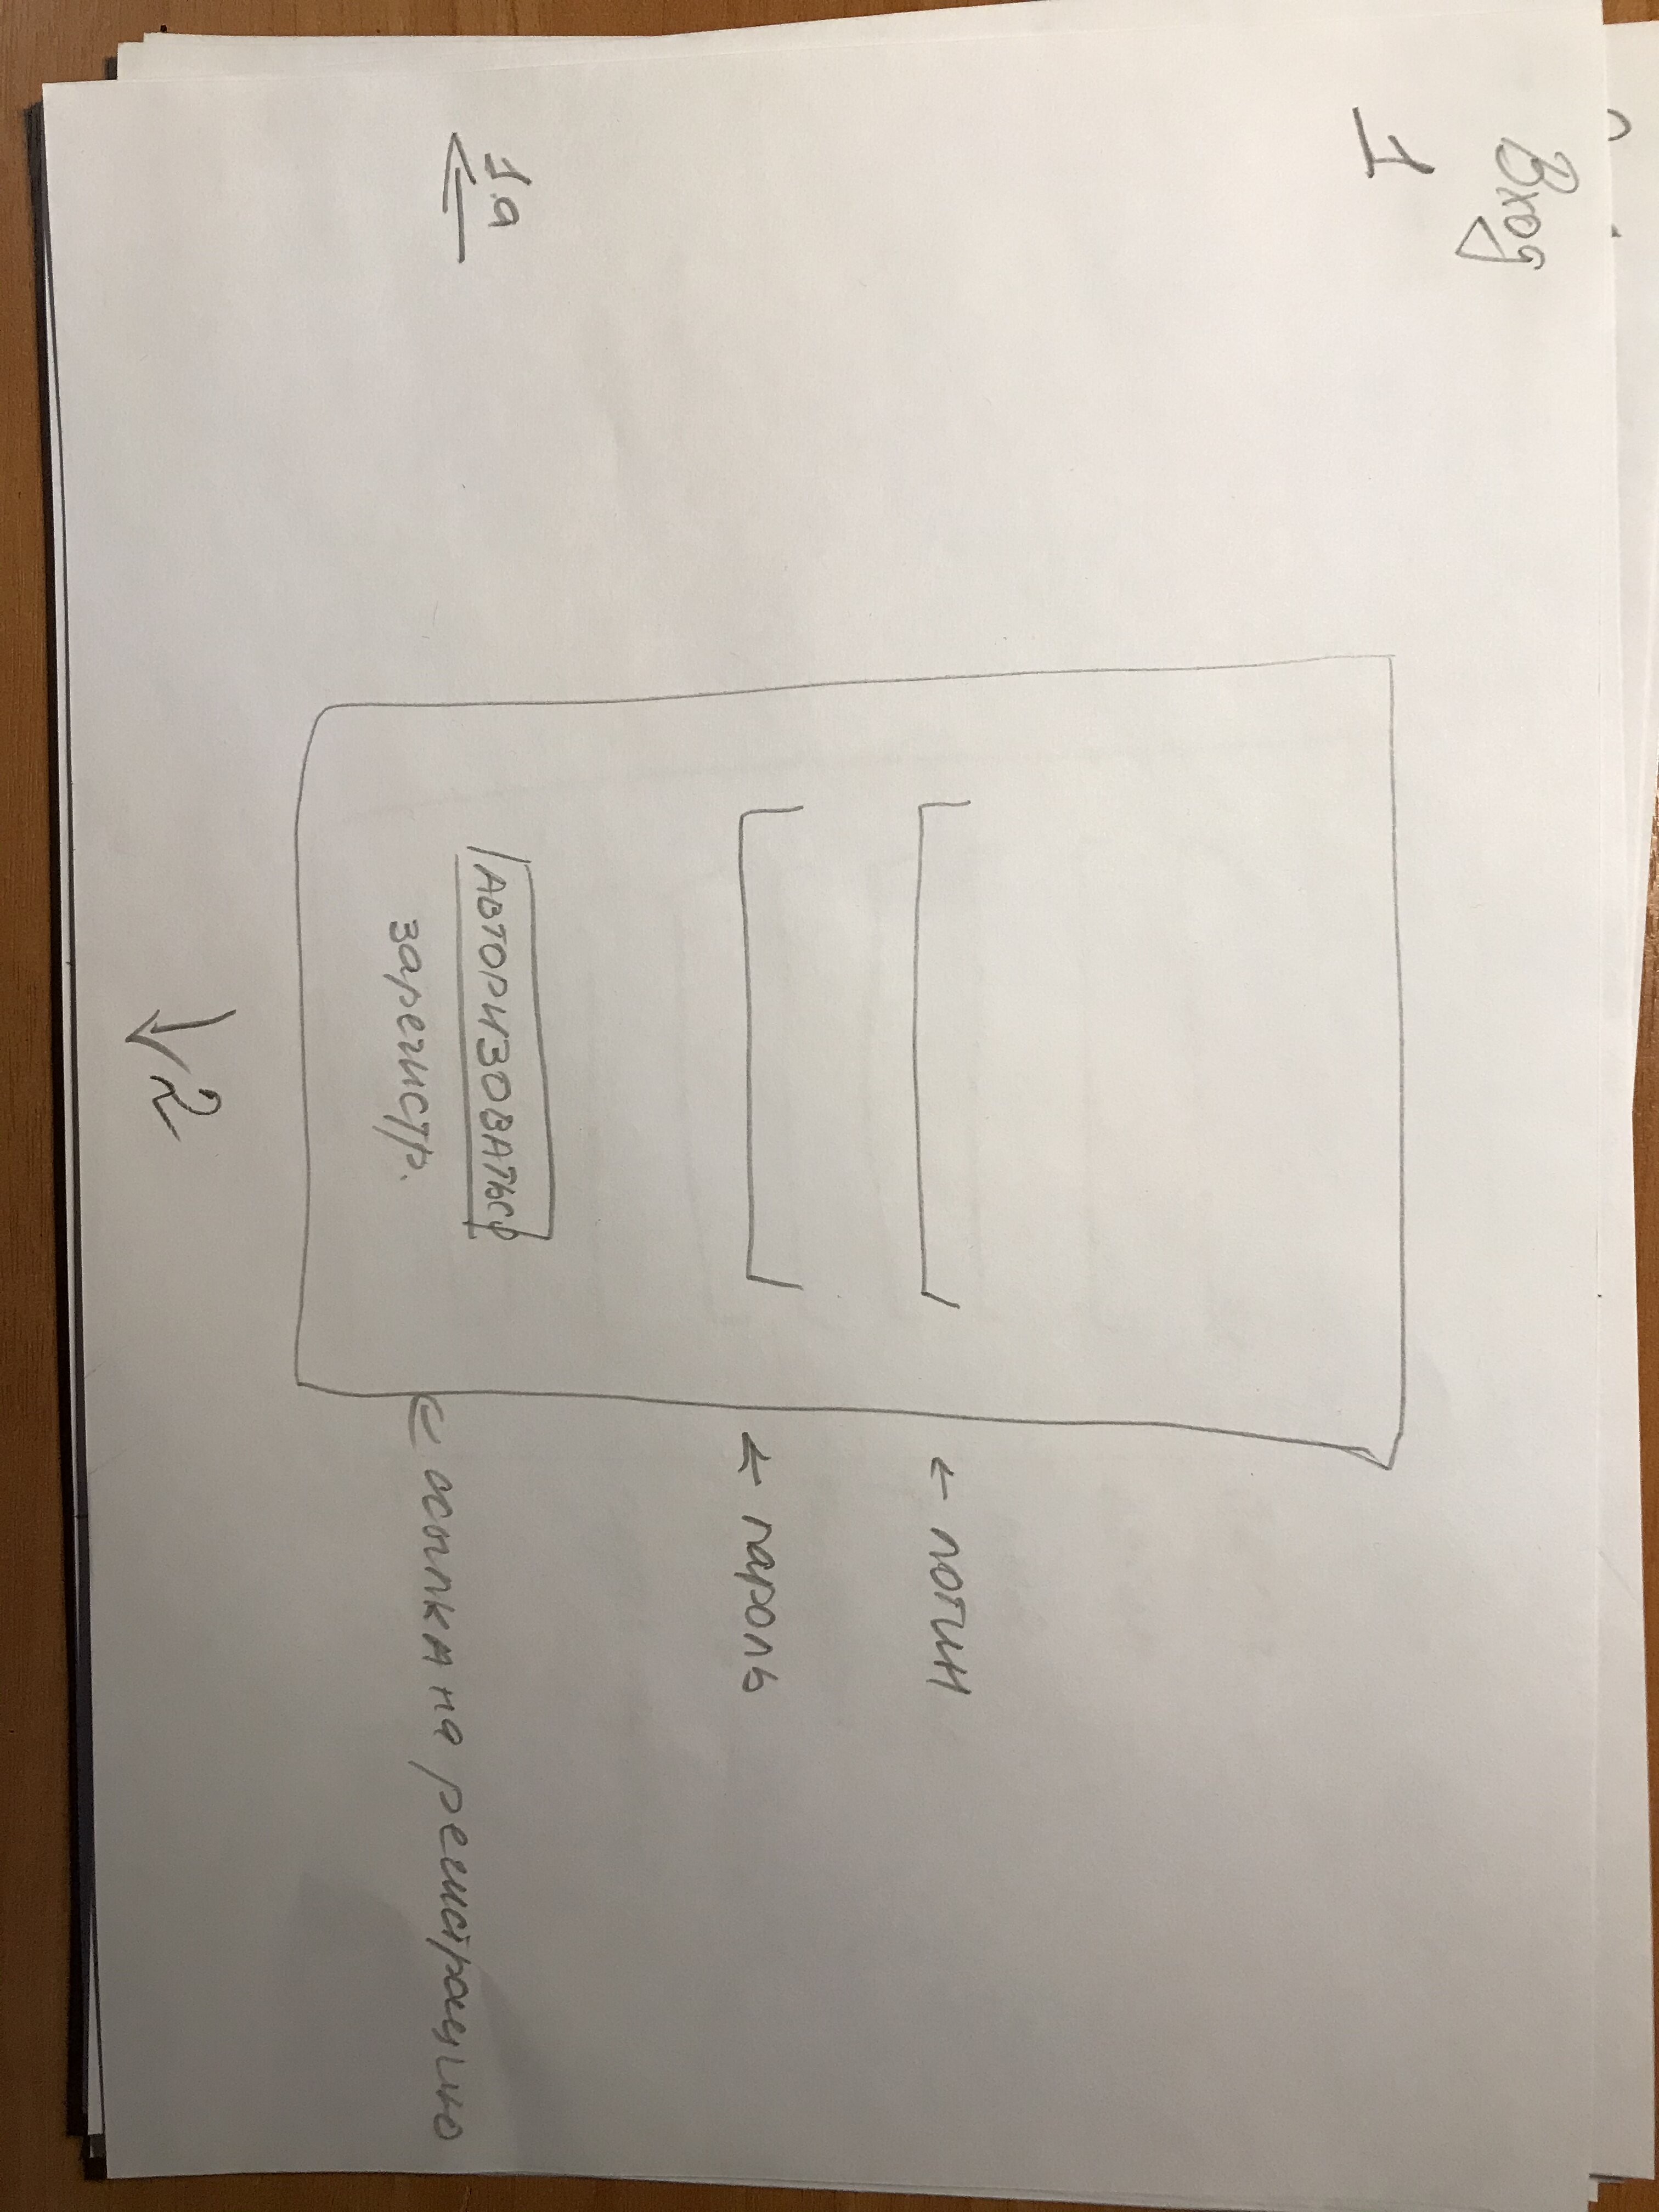 Вход
1
← логин
← пароль
АВТОРИЗОВАТЬСЯ
1а
зарегистр.
← ссылка на регистрацию
↓ 2